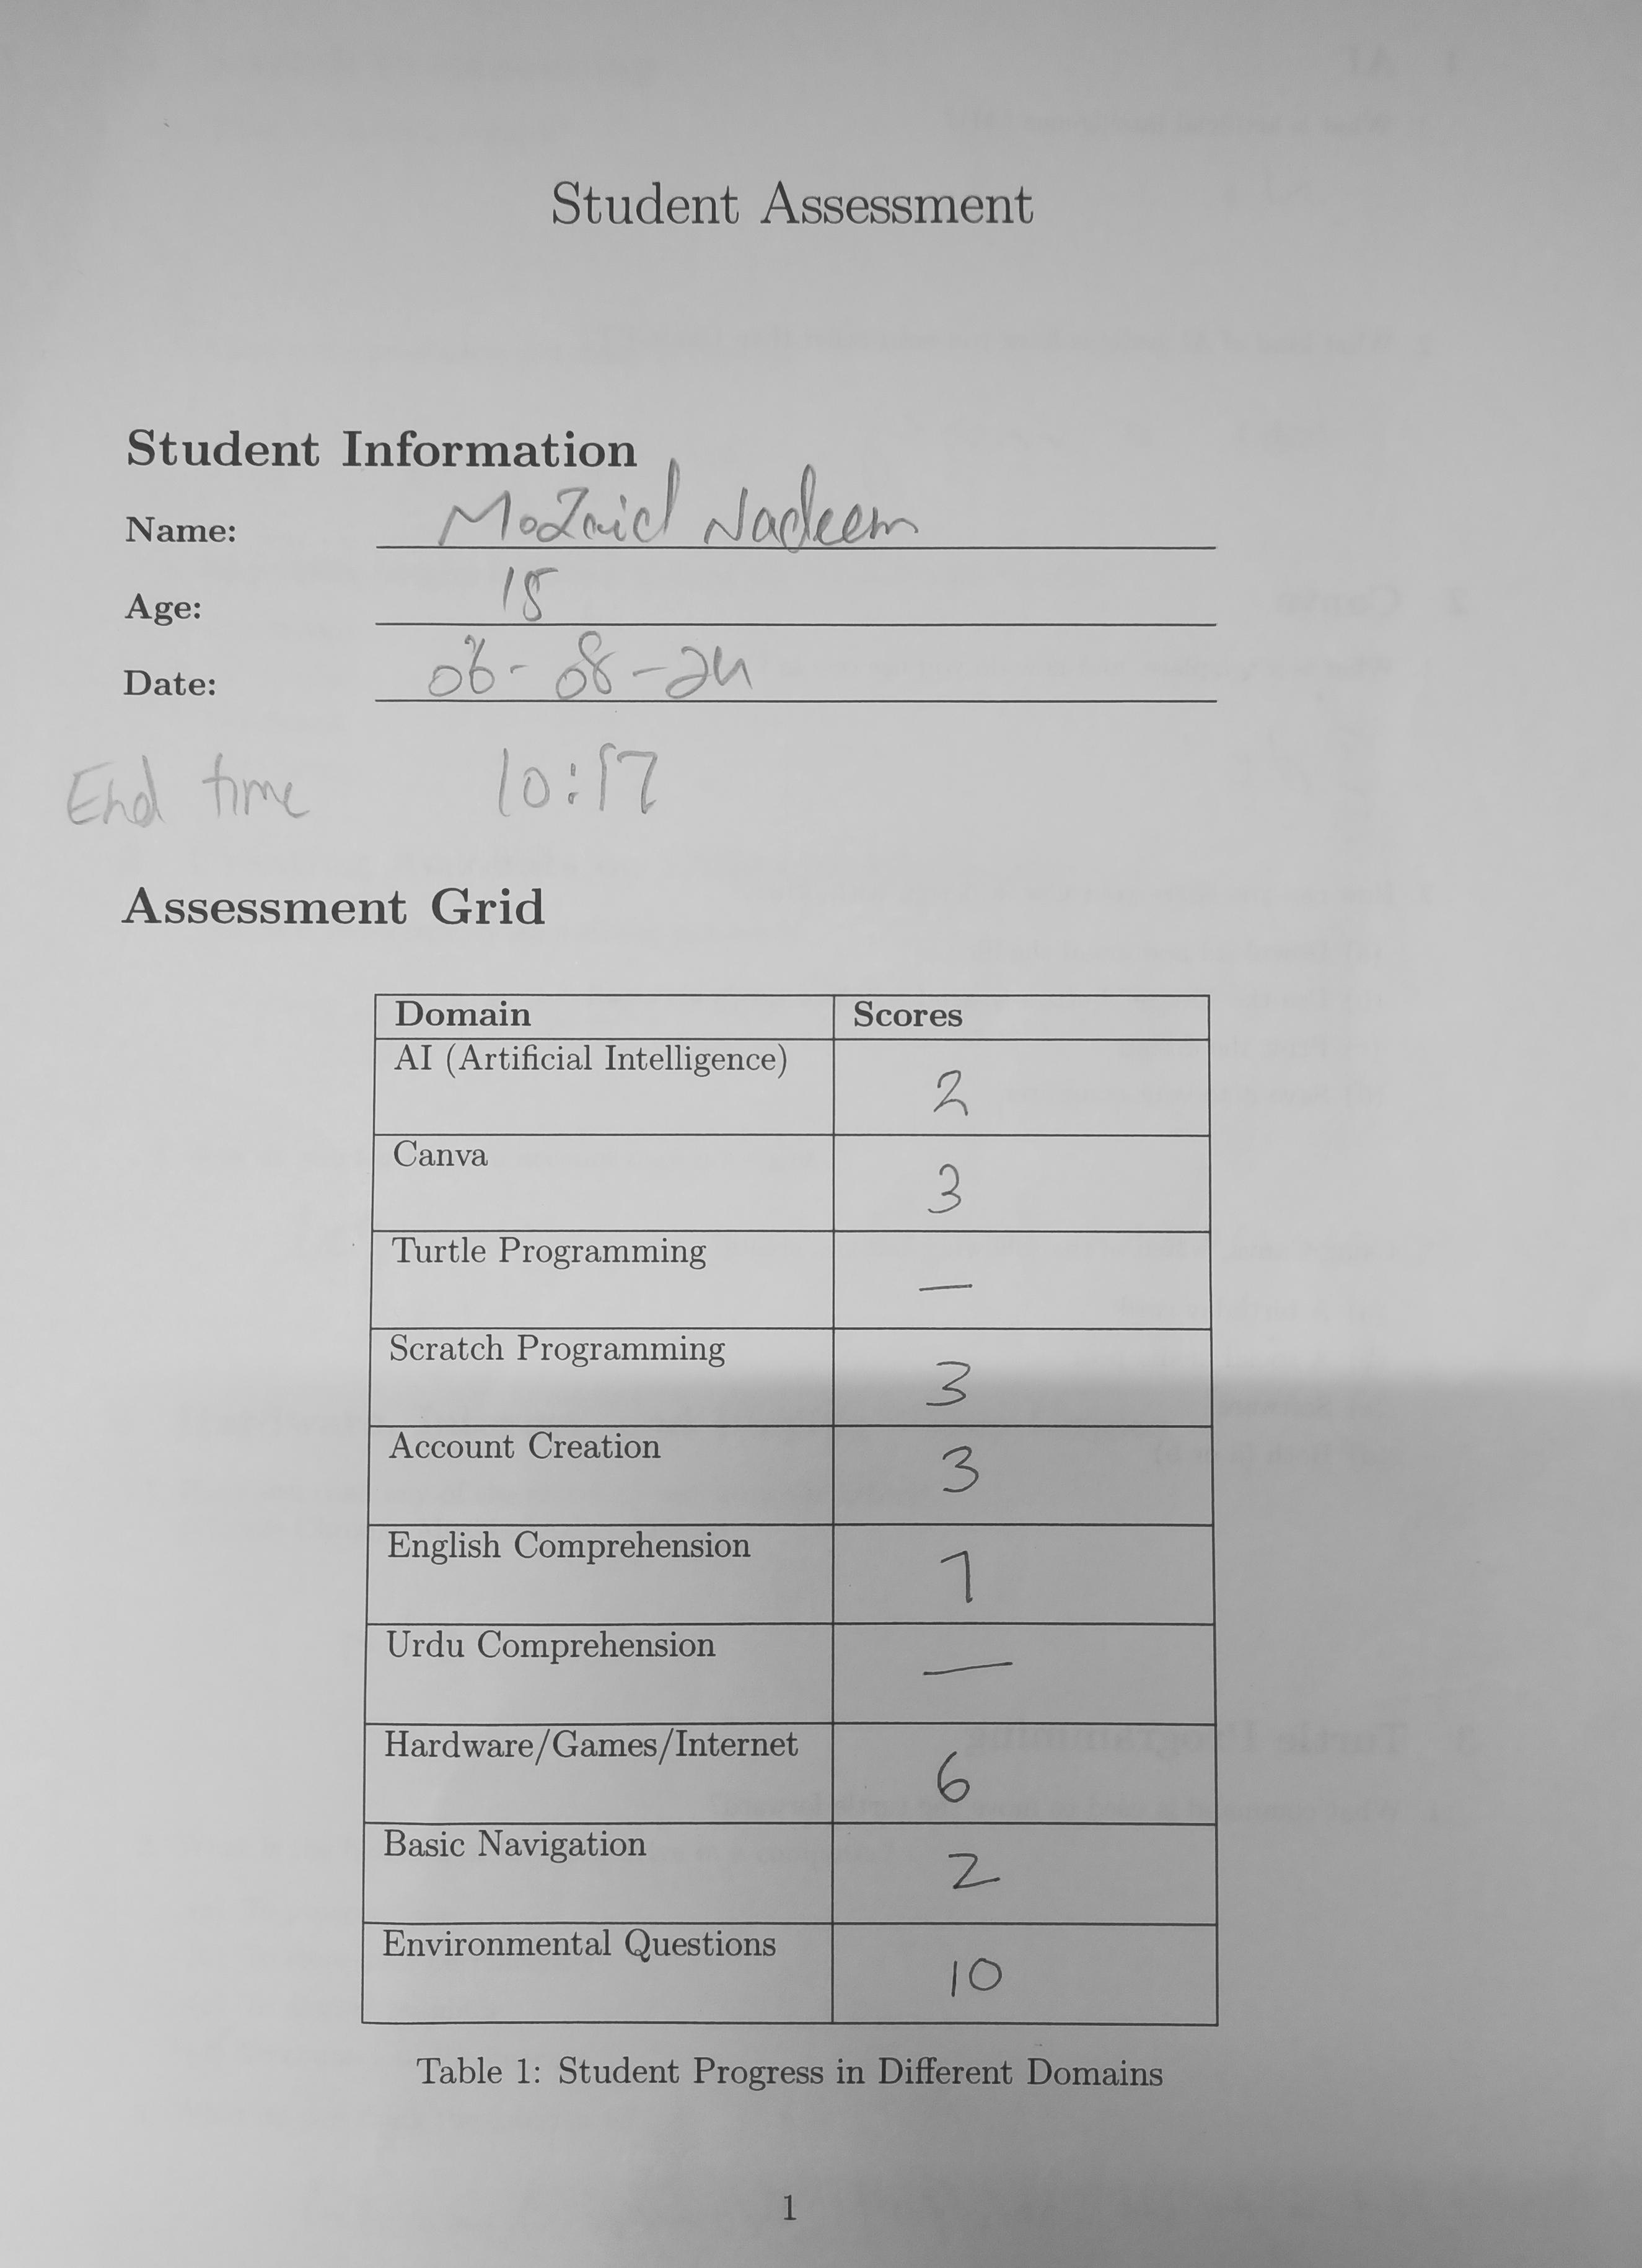 Student Assessment
Student Information
Name: MoZaid Nadeem
Age: 18
Date: 06-08-24
End time 10:17
Assessment Grid
Domain Scores
AI (Artificial Intelligence) 2
Canva 3
Turtle Programming —
Scratch Programming 3
Account Creation 3
English Comprehension 7
Urdu Comprehension —
Hardware/Games/Internet 6
Basic Navigation 2
Environmental Questions 10
Table 1: Student Progress in Different Domains
1